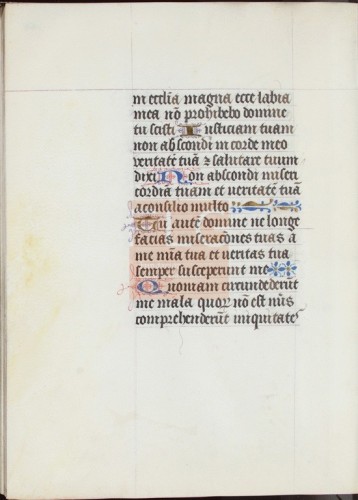 in ecclīa magna ecce labia
mea nō prohibebo domine
tu scisti Iusticiam tuam
non abscondi in corde meo
veritatē tuā ⁊ salutare tuum
dixi Non abscondi miseri
cordiā tuam et veritatē tuā
a consilio multo
Tu autē domine ne longe
facias miseracōnes tuas a
me mīa tua et veritas tua
semper susceperunt me
Quoniam circundederūt
me mala quor nō est nūs
comprehenderūt iniquitates